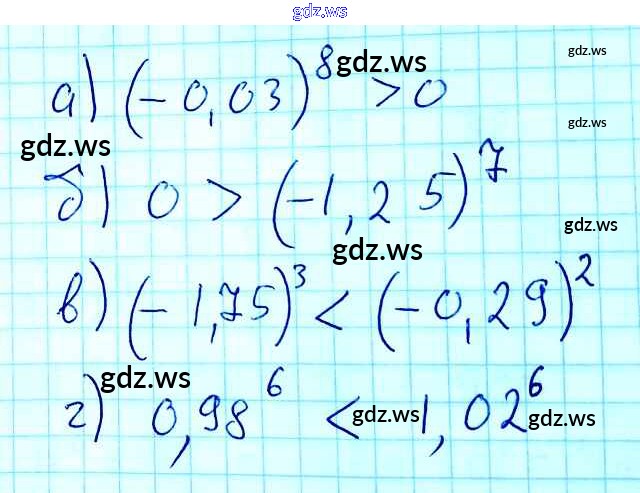 gdz.ws
а) (-0,03)⁸ > 0
gdz.ws
gdz.ws
gdz.ws
gdz.ws
б) 0 > (-1,25)⁷
gdz.ws
gdz.ws
в) (-1,75)³ < (-0,29)²
gdz.ws
г) 0,98⁶ < 1,02⁶
gdz.ws
gdz.ws